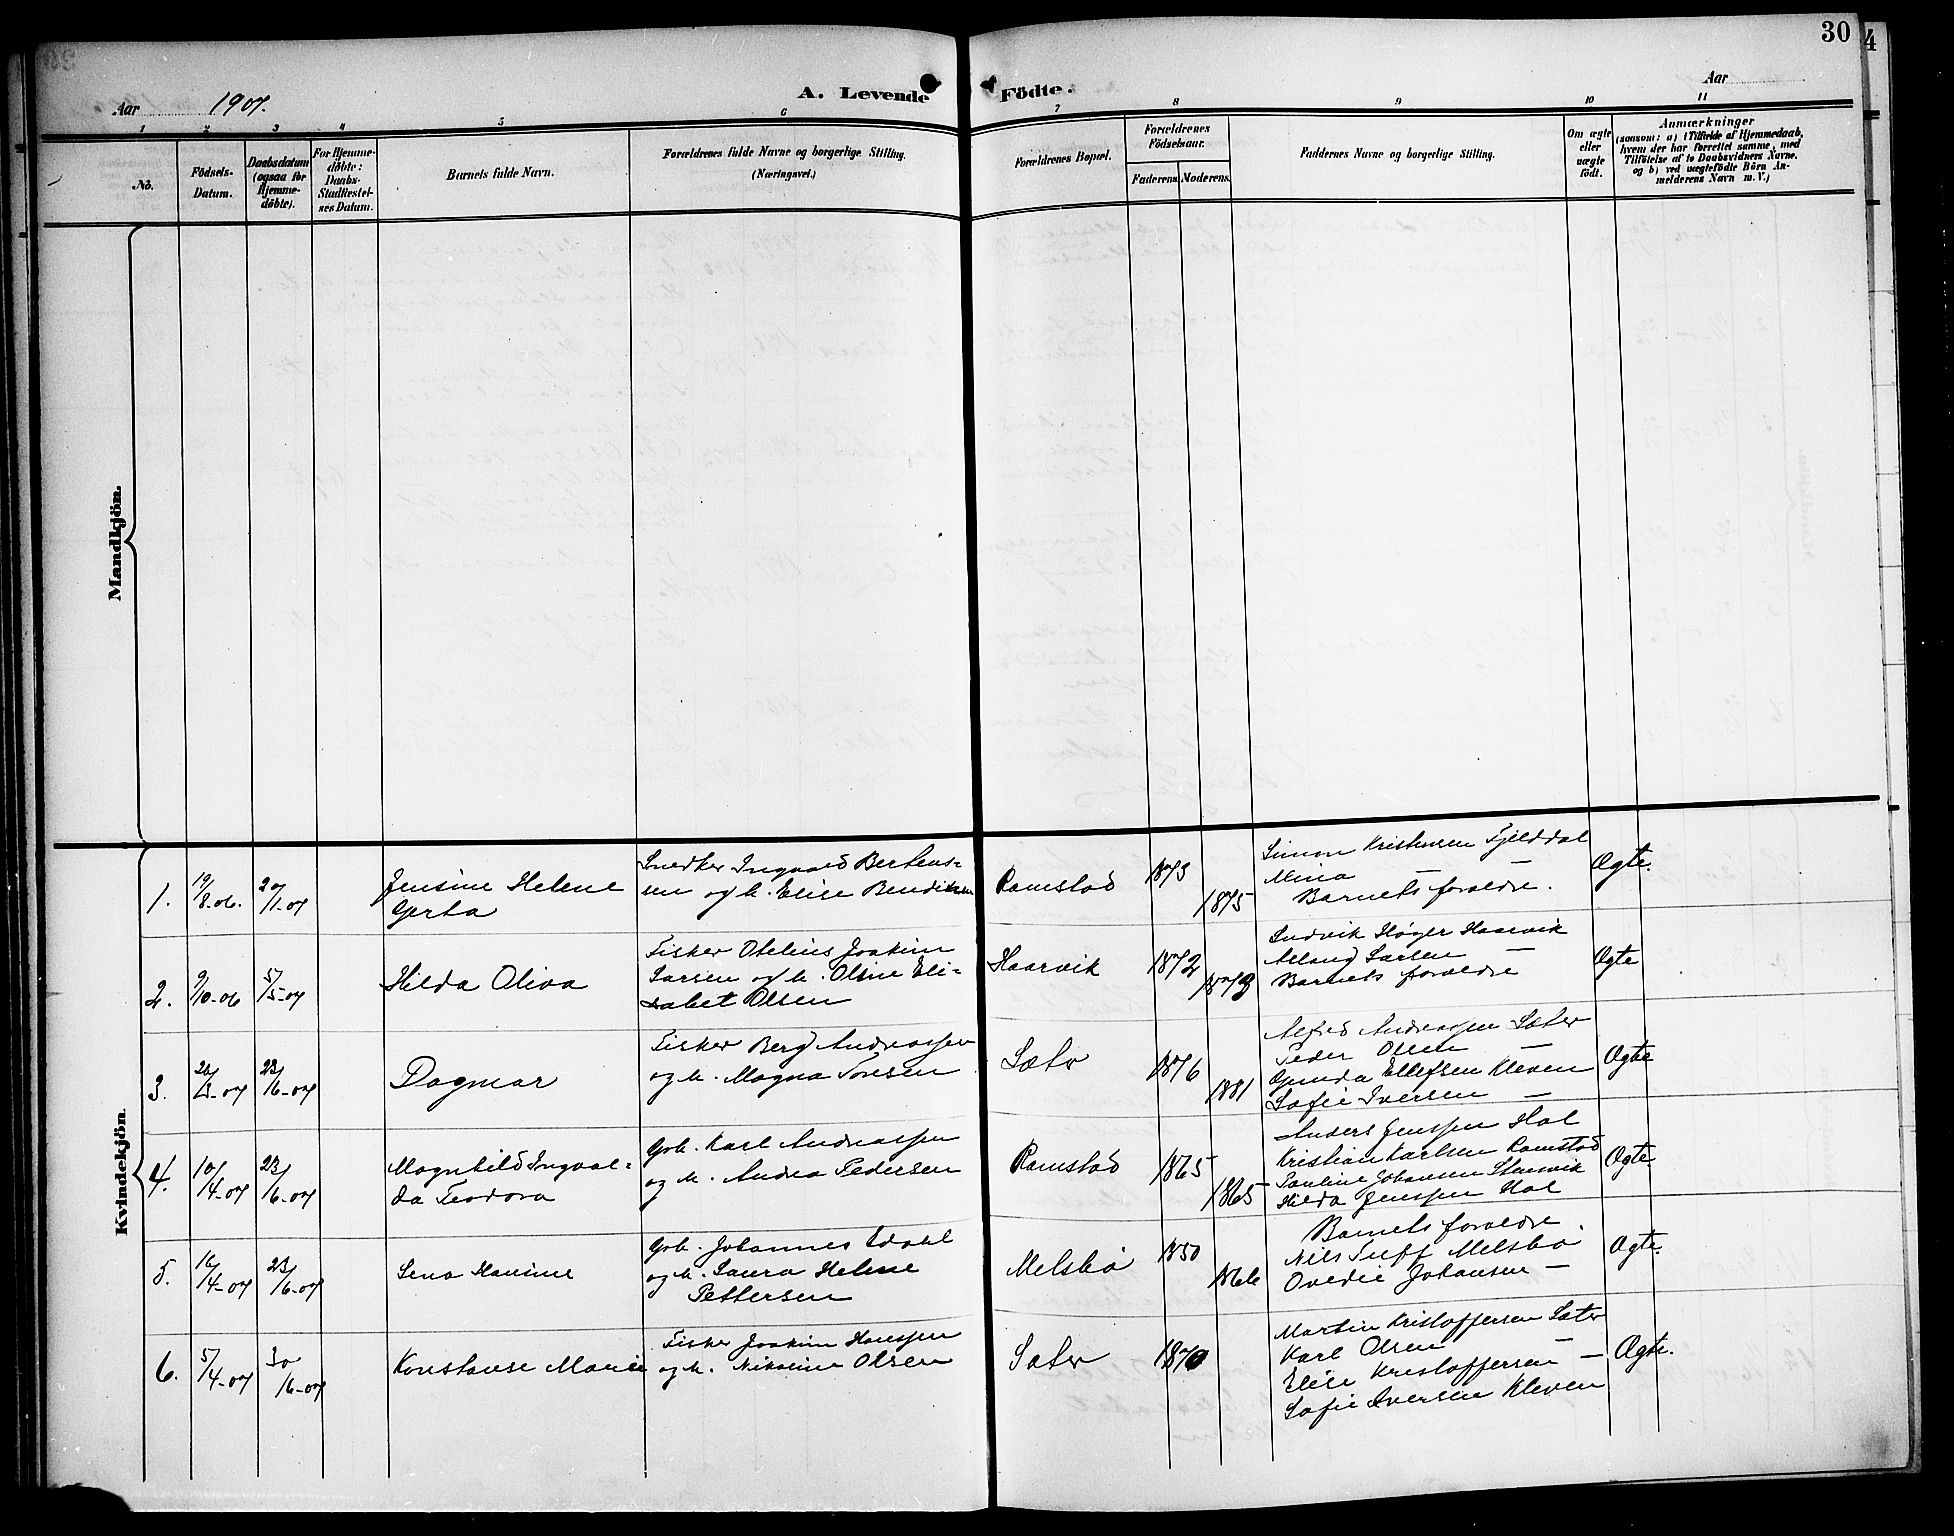 30
4
Aar 1907.
A. Levende Födte.
Aar
1 2 3 4 5 6 7 8 9 10 11
No.
Födsels-
Datum.
Daabsdatum
(ogsaa for
Hjemme-
döbte).
For Hjemme-
döbte:
Daabs-
Stadfæstel-
ses Datum.
Barnets fulde Navn.
Forældrenes fulde Navne og borgerlige Stilling.
(Næringsvei.)
Forældrenes Bopæl.
Forældrenes
Födselsaar.
Faderens. Moderens.
Faddernes Navne og borgerlige Stilling.
Om ægte
eller
uægte
födt.
Anmærkninger
(saasom: a) i Tilfælde af Hjemmedaab,
hvem der har forrettet samme, med
Tilföielse af to Daabsvidners Navne,
og b) ved uægtefödte Börn An-
melderens Navn m. V.)
Mandkjön.
Kvindekjön.
1.
19/8-06.
20/1-07
Jensine Helene
Gerta
Snedker Ingvald Bertens-
sen og h. Elise Bendiksen
Ramstad
1873
1875
Simon Kristensen Fjelddal
Mina —
Barnets foreldre.
Ægte.
2.
9/10-06
5/5-07
Hilda Oliva
Fisker Otelius Joakim
Larsen og h. Oline Eli-
sabet Olsen
Haarvik
1872
1873
Ludvik Høger Haarvik
Larsen —
Barnets foreldre
Ægte
3.
/3-07
23/6-07
Dagmar
Fisker Berg Andreassen
og h. Magna Toresen
Sæter
1876
1881
Alfred Andreassen Sæter
Peder Olsen —
Gunda Ellefsen Kleven
Sofie Iversen —
Ægte
4.
10/4-07
23/6-07
Magnhild Ingval-
da Teodora
Grb. Karl Andreassen
og h. Andrea Pedersen
Ramstad
1865
1865
Anders Jenssen Hol
Kristian Karlsen Ramstad
Pauline Johansen
Hilda Jenssen Hol
Ægte
5.
16/4-07
23/6-07
Lena Hansine
Grb. Johannes Edahl
og h. Laura Helene
Pettersen
Melsbø
1850
1866
Barnets foreldre.
Nils Tuff Melsbø
Ovedie Johansen —
Ægte.
6.
5/4-07
30/6-07
Konstanse Marie
Fisker Joakim Hanssen
og h. Nikoline Olsen
Sæter
1870
Martin Kristoffersen Sæter
Karl Olsen —
Elise Kristoffersen —
Sofie Iversen Kleven
Ægte.